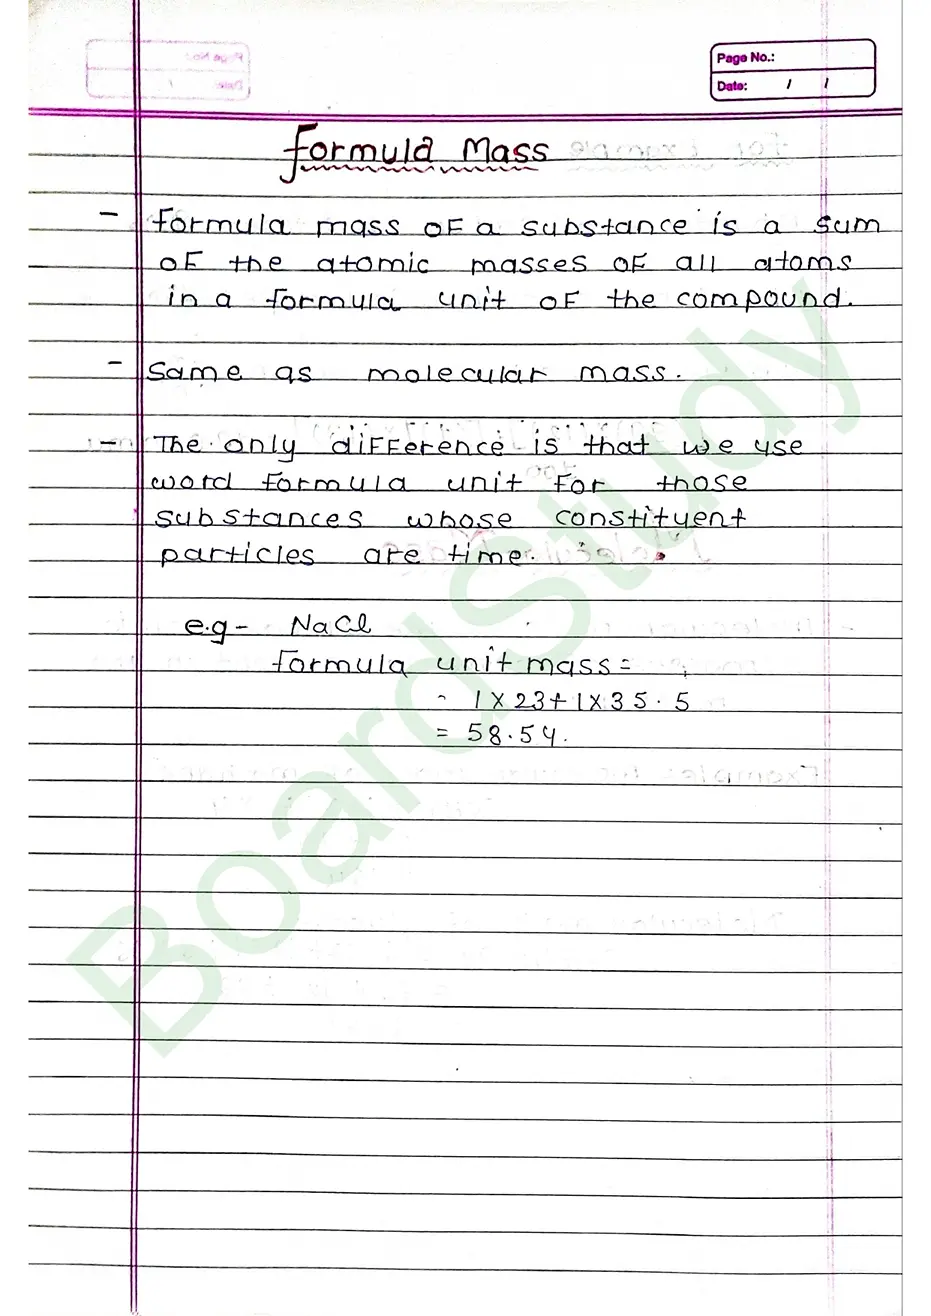 Page No.:
Date: / /
Formula Mass
- Formula mass of a substance is a sum
of the atomic masses of all atoms
in a formula unit of the compound.
- Same as molecular mass.
- The only difference is that we use
word formula unit for those
substances whose constituent
particles are time.
e.g - NaCl
formula unit mass =
- 1 x 23 + 1 x 35.5
= 58.54.
BoardStudy